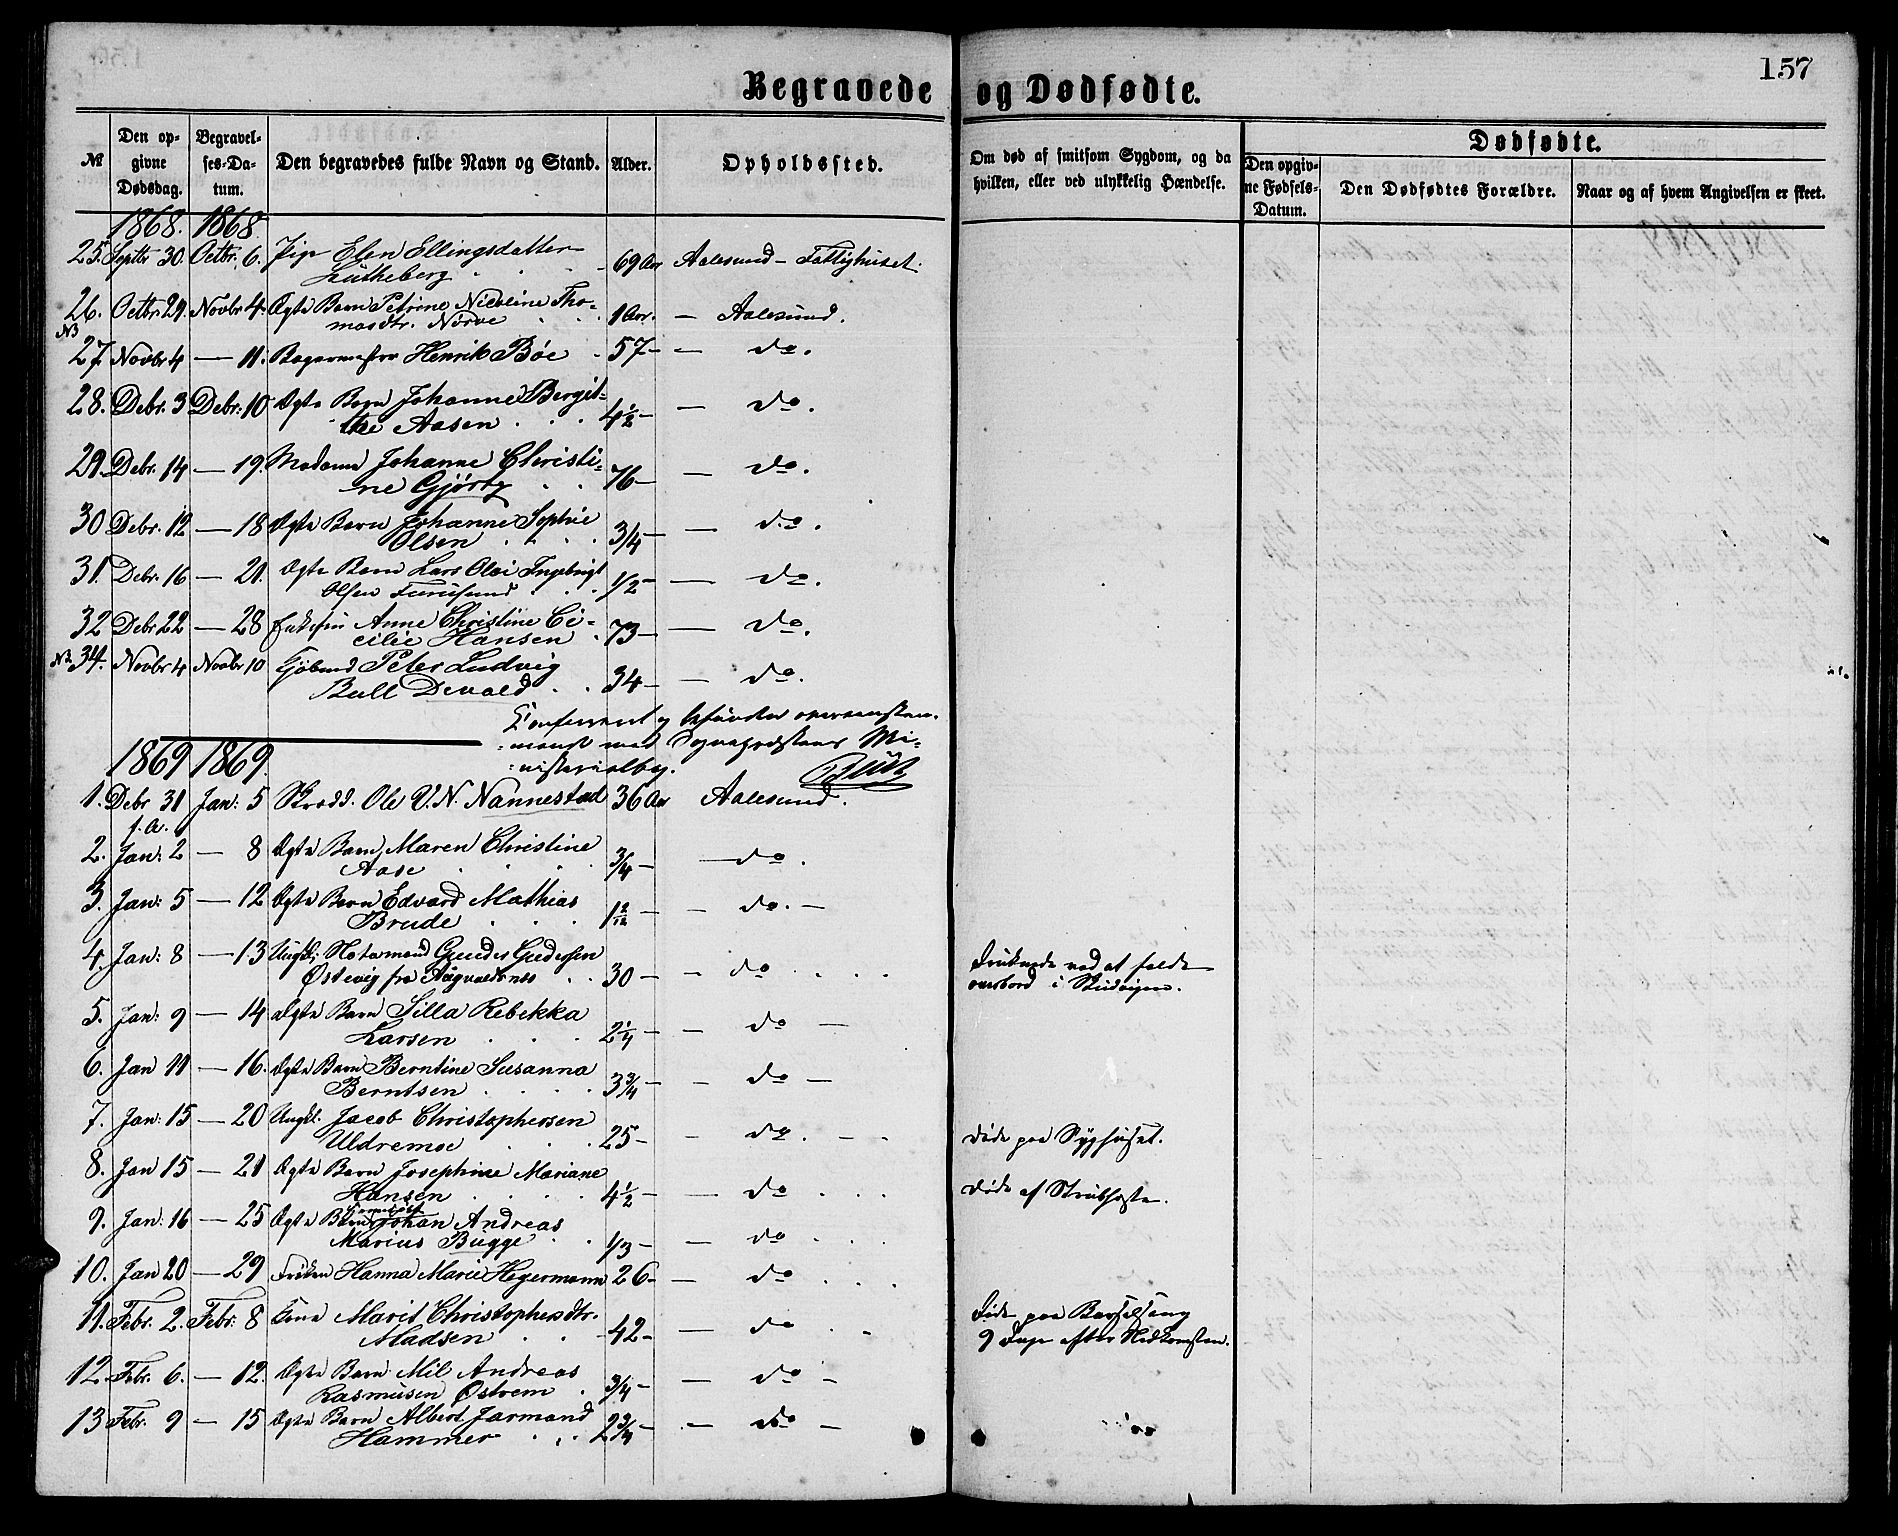 157
Begravede og Dødfødte.
№
Den op-
givne
Dødsdag.
Begravel-
ses-Da-
tum.
Den begravedes fulde Navn og Stand.
Alder.
Opholdssted.
Om død af smitsom Sygdom, og da
hvilken, eller ved ulykkelig Hændelse.
Dødfødte.
Den opgiv-
ne Fødsels-
Datum.
Den Dødfødtes Forældre.
Naar og af hvem Angivelsen er skeet.
1868. 1868.
25. Septbr 30. Octbr. 6. Pige Elen Ellingsdatter 69 Aar Aalesund – Fattighuset.
Lutheberg
26. Octbr 29. Novbr 4. Ægte Barn Petrine Nicoline Tho- 1 Aar. — Aalesund.
masdtr. Nørve
NB
27. Novbr 4 — 11. Bagermester Henrik Bøe 57 — — do.
28. Debr. 3 Debr: 10 Ægte Barn Johanne Bergit- 4½ — — do.
the Aasen
29. Debr. 14 — 19. Madame Johanne Christi- 76 — — do.
ne Gjørtz
30 Debr. 12 — 18 Ægte Barn Johanne Sophie 3/4 — — do.
Olsen
31. Debr. 16 — 21. Ægte Barn Lars Olai Ingebrigt 1/2 — — do.
Olsen Furusund
32 Debr 22 — 28 Enkefru Anne Christine Ce- 73 — — do.
cilie Hansen
NB. 34. Novbr 4 Novbr 10 Peter Ludvig 34 — — do.
Bull Devold
Confereret og befundet overeensstem-
mende med Sognepræstens Mi-
nisterialbog.
1869 1869.
1. Debr 31 Jan: 5 Skrædd. Ole V. N. Nannestad 36 Aar Aalesund.
f. A.
2. Jan: 2 — 8 Ægte Barn Maren Christine 3/4 — — do.
Aase
3. Jan: 5 — 12 Ægte Barn Edvard Mathias 1 2/12 — — do. —
Brude
4. Jan: 8 — 13 Ungk. Notemand Gunder Gudersen 30 — — do Druknede ved at falde
Østevig fra Augvaldsnes overbord i Skudvigen.
5. Jan: 9 — 14 Ægte Barn Silla Rebekka 2¼ — — do —
Larsen
6. Jan 11 — 16. Ægte Barn Berntine Susanna 3¾ — — do —
Berntsen
7. Jan: 15 — 20 Ungkl. Jacob Christophersen 25 — — do. — døde paa Sygehuset.
Uldremoe
8. Jan 15 — 21 Ægte Barn Josephine Mariane 4½ — — do døde af Strubehoste.
Hansen
9. Jan: 16 — 25 Ægte Barn Johan Andreas
Marius Bugge 1/3 — — do
10. Jan 20 — 29 Frøken Hanna Marie Hegermann 26 — — do
11. Febr. 2. Febr: 8 Kone Marit Christophersdtr. 42 — — do Døde paa Barselseng
Madsen 9 Dage efter Nedkomsten.
12. Febr. 6. — 12. Ægte Barn Mil Andreas 3/4 — — do —
Rasmusen Østrem
13 Febr. 9 — 15 Ægte Barn Albert Jarmand 2¾ — — do —
Hammer